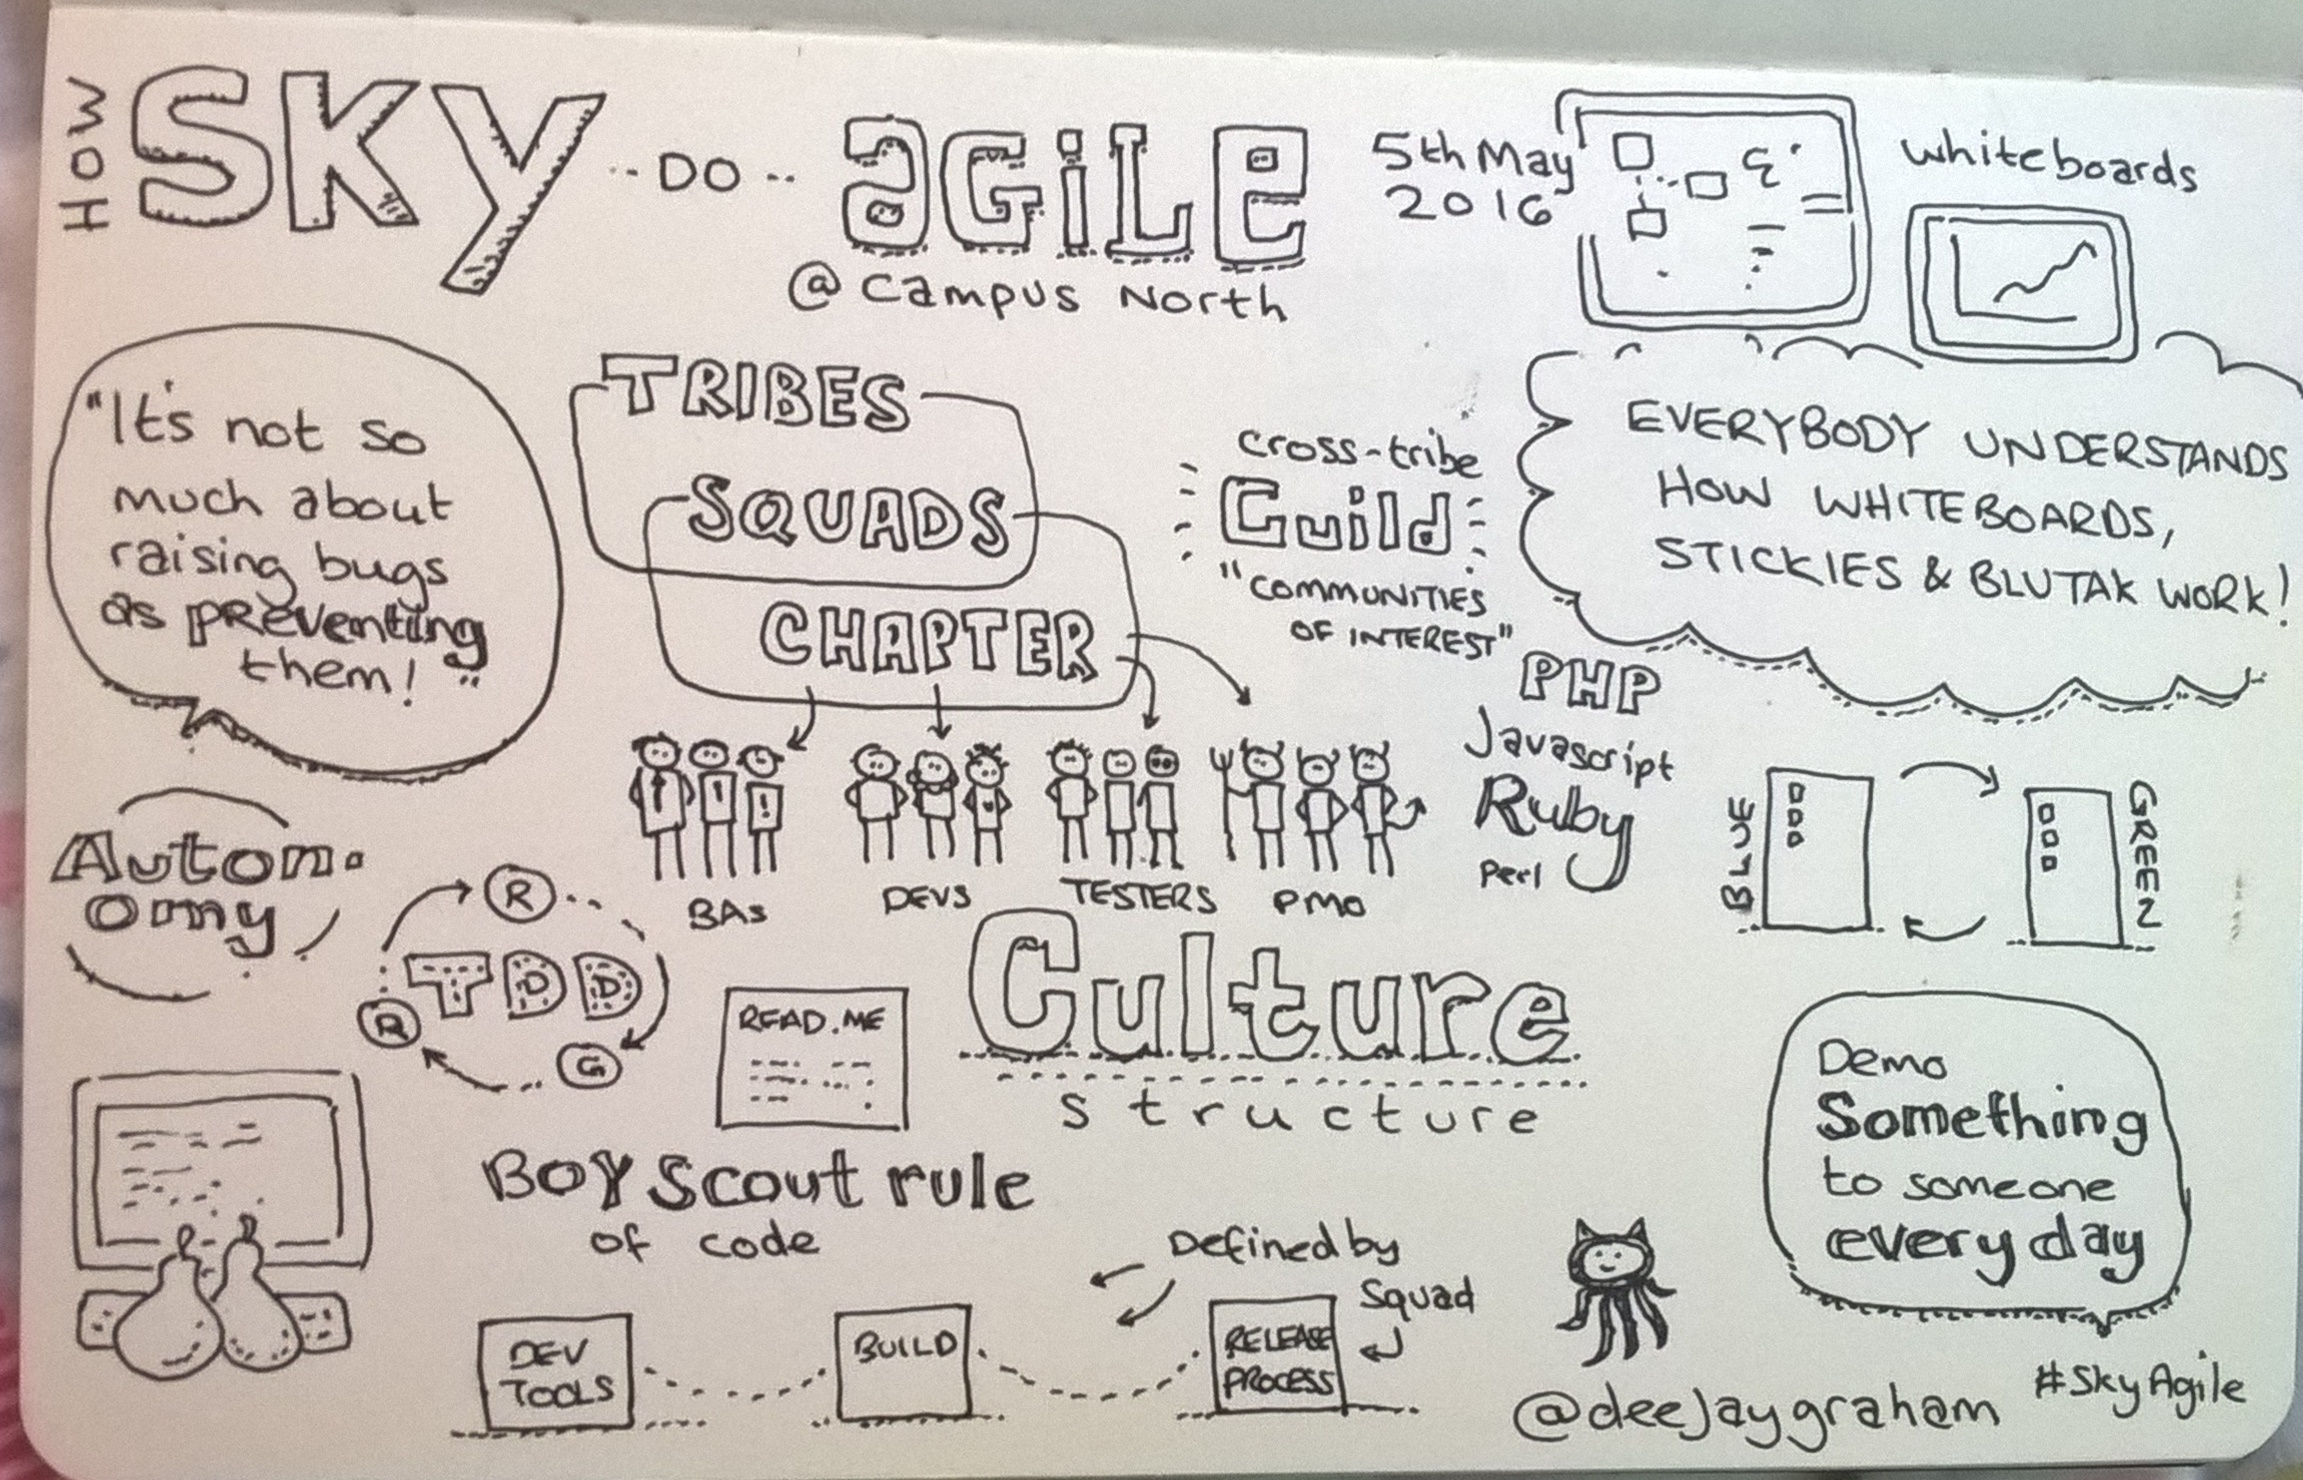 HOW SKY ·· DO ·· agile
@ Campus North
5th May
2016
whiteboards
"It's not so
much about
raising bugs
as preventing
them!
TRIBES
SQUADS
CHAPTER
cross-tribe
Guild
"COMMUNITIES
OF INTEREST"
EVERYBODY UNDERSTANDS
HOW WHITEBOARDS,
STICKIES & BLUTAK WORK!
PHP
Javascript
Ruby
Perl
BAs
DEVS
TESTERS
PMO
BLUE
GREEN
Auton.
omy
R
TDD
R
G
READ.ME
Culture
structure
Demo
Something
to someone
every day
BOY Scout rule
of code
Defined by
Squad
DEV
TOOLS
BUILD
RELEASE
PROCESS
@deejaygraham
#SkyAgile